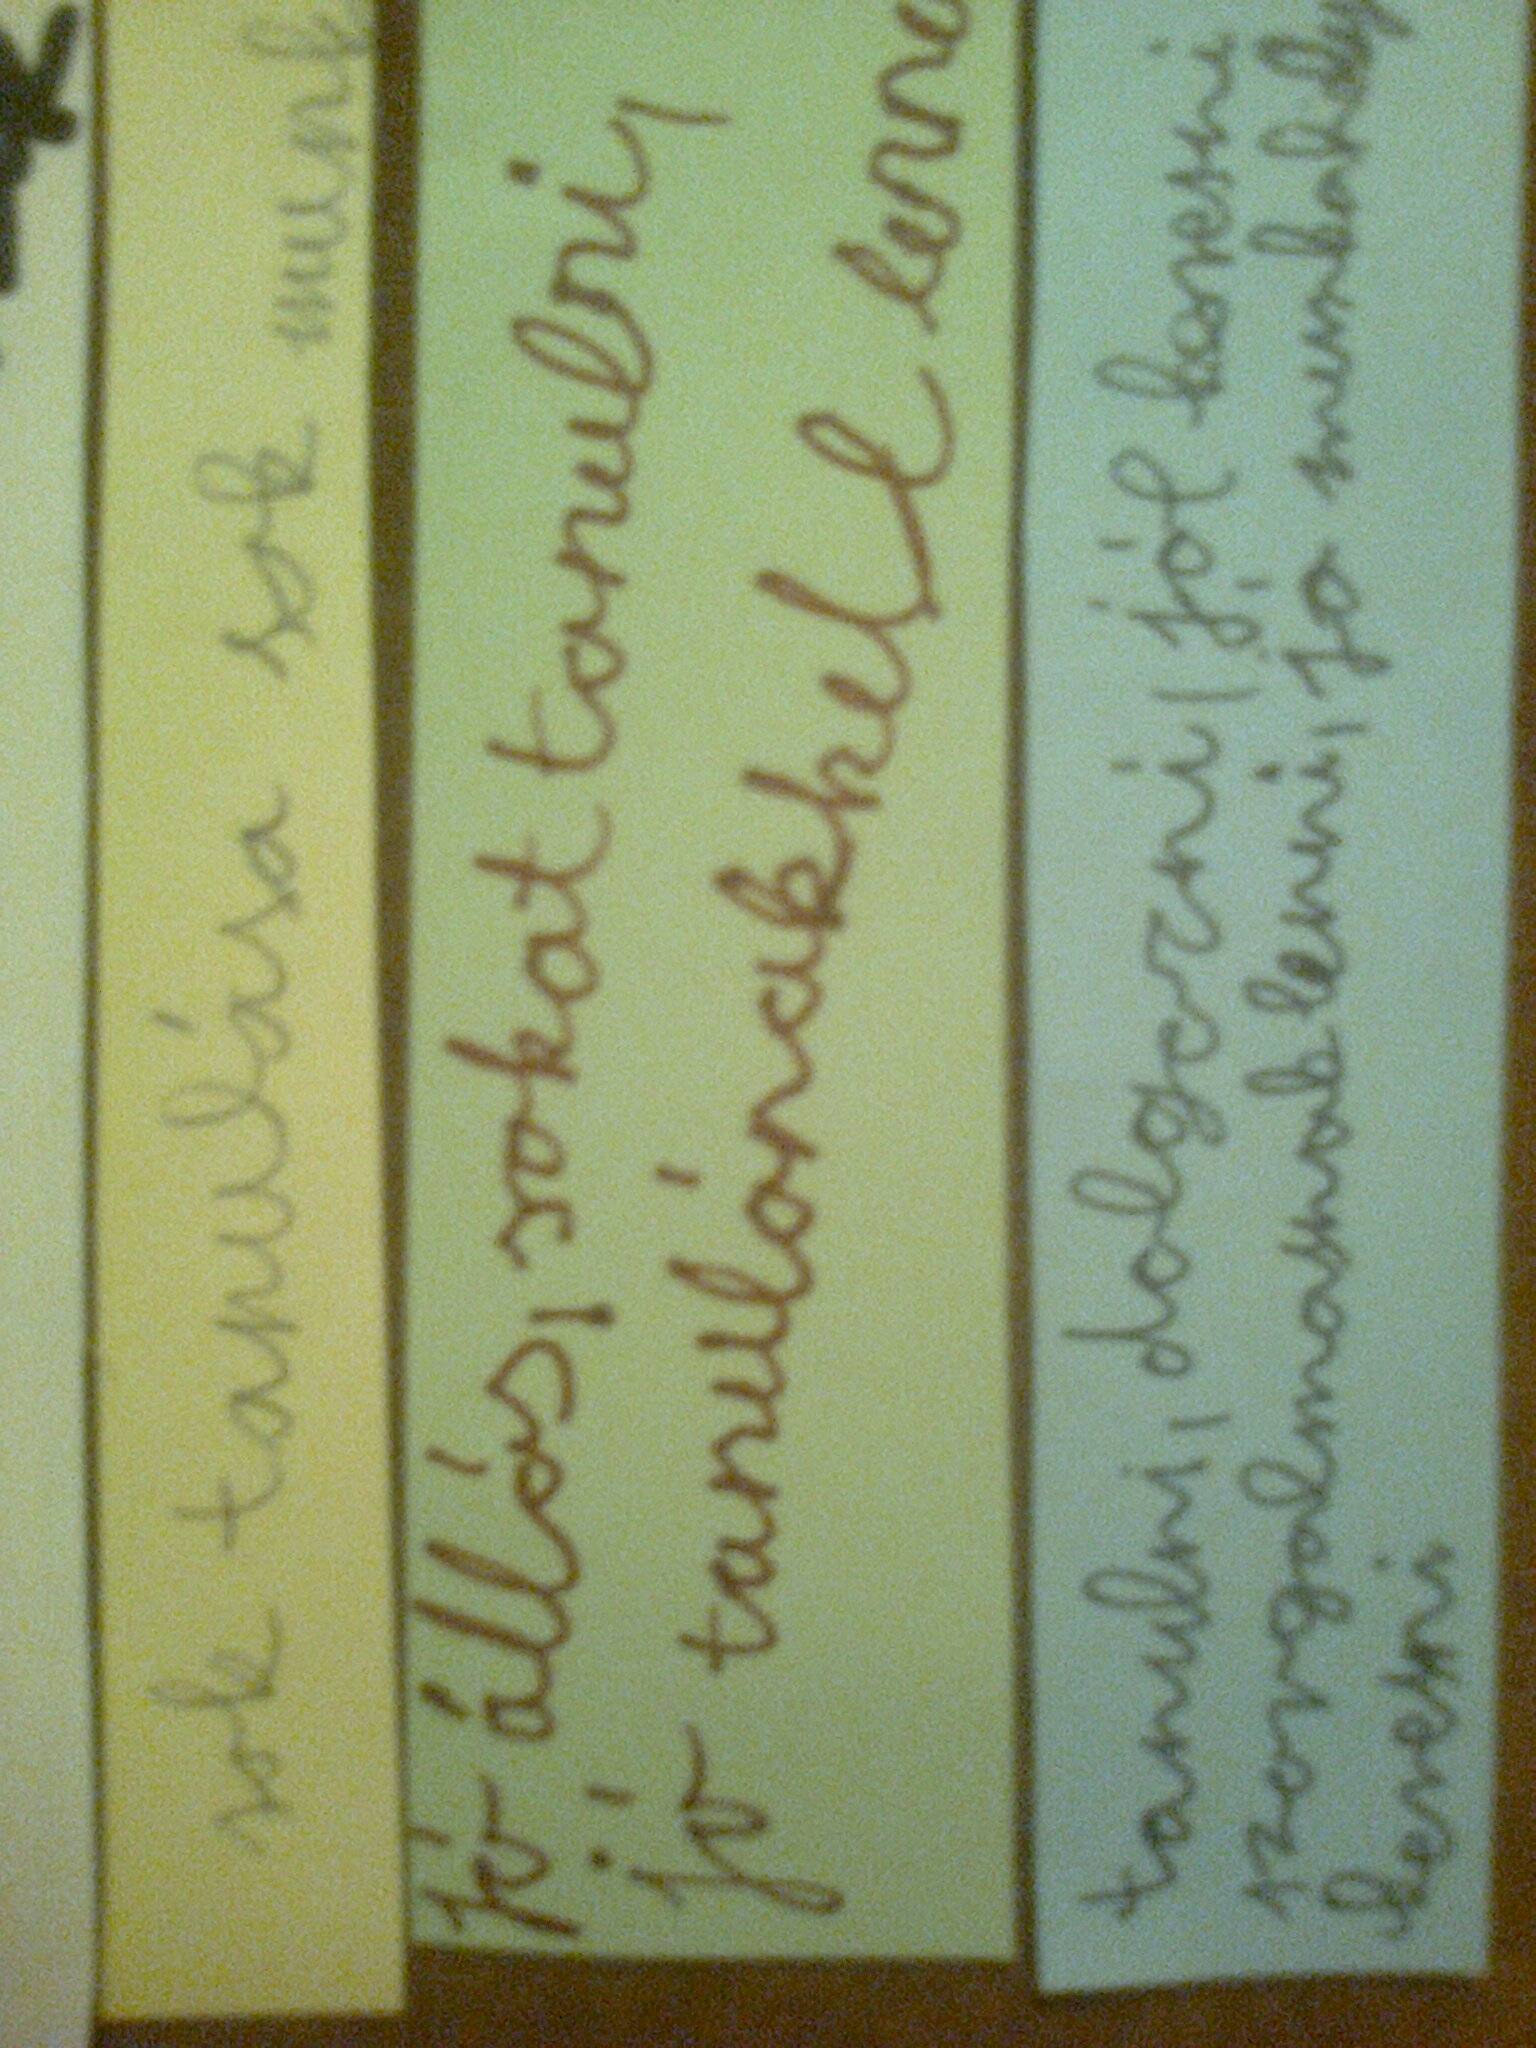 sok tanulása sok munk
jó állás, sokat tanulni,
jó tanulónak kell lenn
tanulni, dolgozni, jól keresni
szorgalmasnak lenni, jo munkahely
keresni